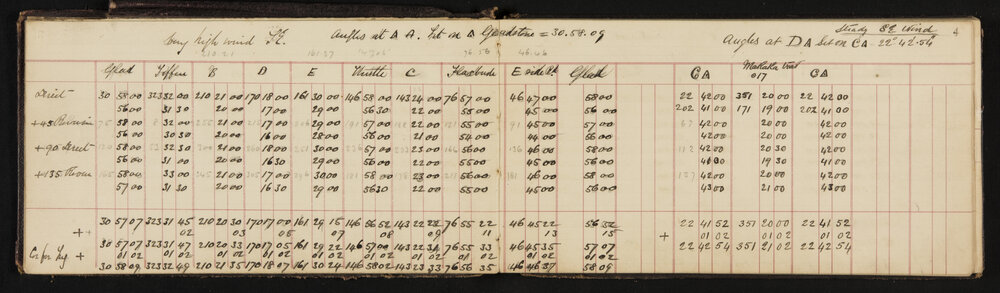 Very high wind SE. Angles at △ A. Set on △ Gladstone = 30.58.09
Steady SE Wind
4
Angles at D△ Set on C△ - 22° 42' 54
Glad B D E Thistle C E side Pt. Glad C△ 017 C△
Direct 30 58 00 323 32 00 210 21 00 170 18 00 161 30 00 146 58 00 143 24 00 76 57 00 46 47 00 58 00 22 42 00 351 20 00 22 42 00
56 00 31 30 20 00 17 00 29 00 56 30 22 00 55 00 45 00 56 00 202 41 00 171 19 00 202 41 00
+45 58 00 32 00 21 00 17 00 29 00 57 00 22 00 55 00 45 00 57 00 42 00 20 00 42 00
56 00 30 30 20 00 16 00 28 00 56 00 21 00 54 00 44 00 56 00 42 00 20 00 42 00
+90 Direct 58 00 32 30 21 00 18 00 30 00 57 00 23 00 56 00 46 00 58 00 42 00 20 30 42 00
56 00 31 00 20 00 16 30 29 00 56 00 22 00 55 00 45 00 56 00 19 30 41 00
+135 58 00 33 00 21 00 17 00 30 00 58 00 23 00 56 00 46 00 58 00 43 00 20 00 42 00
57 00 31 30 20 00 16 30 29 00 56 30 22 00 55 00 45 00 56 00 43 00 21 00 43 00
30 57 07 323 31 45 210 20 30 170 17 00 161 29 15 146 56 52 143 22 22 76 55 22 46 45 22 56 52 22 41 52 351 20 00 22 41 52
+ 02 03 05 07 08 09 11 13 15 + 01 02 01 02 01 02
30 57 07 323 31 47 210 20 33 170 17 05 161 29 22 146 57 00 143 22 31 76 55 33 46 45 35 57 07 22 42 54 351 21 02 22 42 54
+ 01 02 01 02 01 02 01 02 01 02 01 02 01 02 01 02 01 02 01 02
30 58 09 323 32 49 210 21 35 170 18 07 161 30 24 146 58 02 143 23 33 76 56 35 46 46 37 58 09